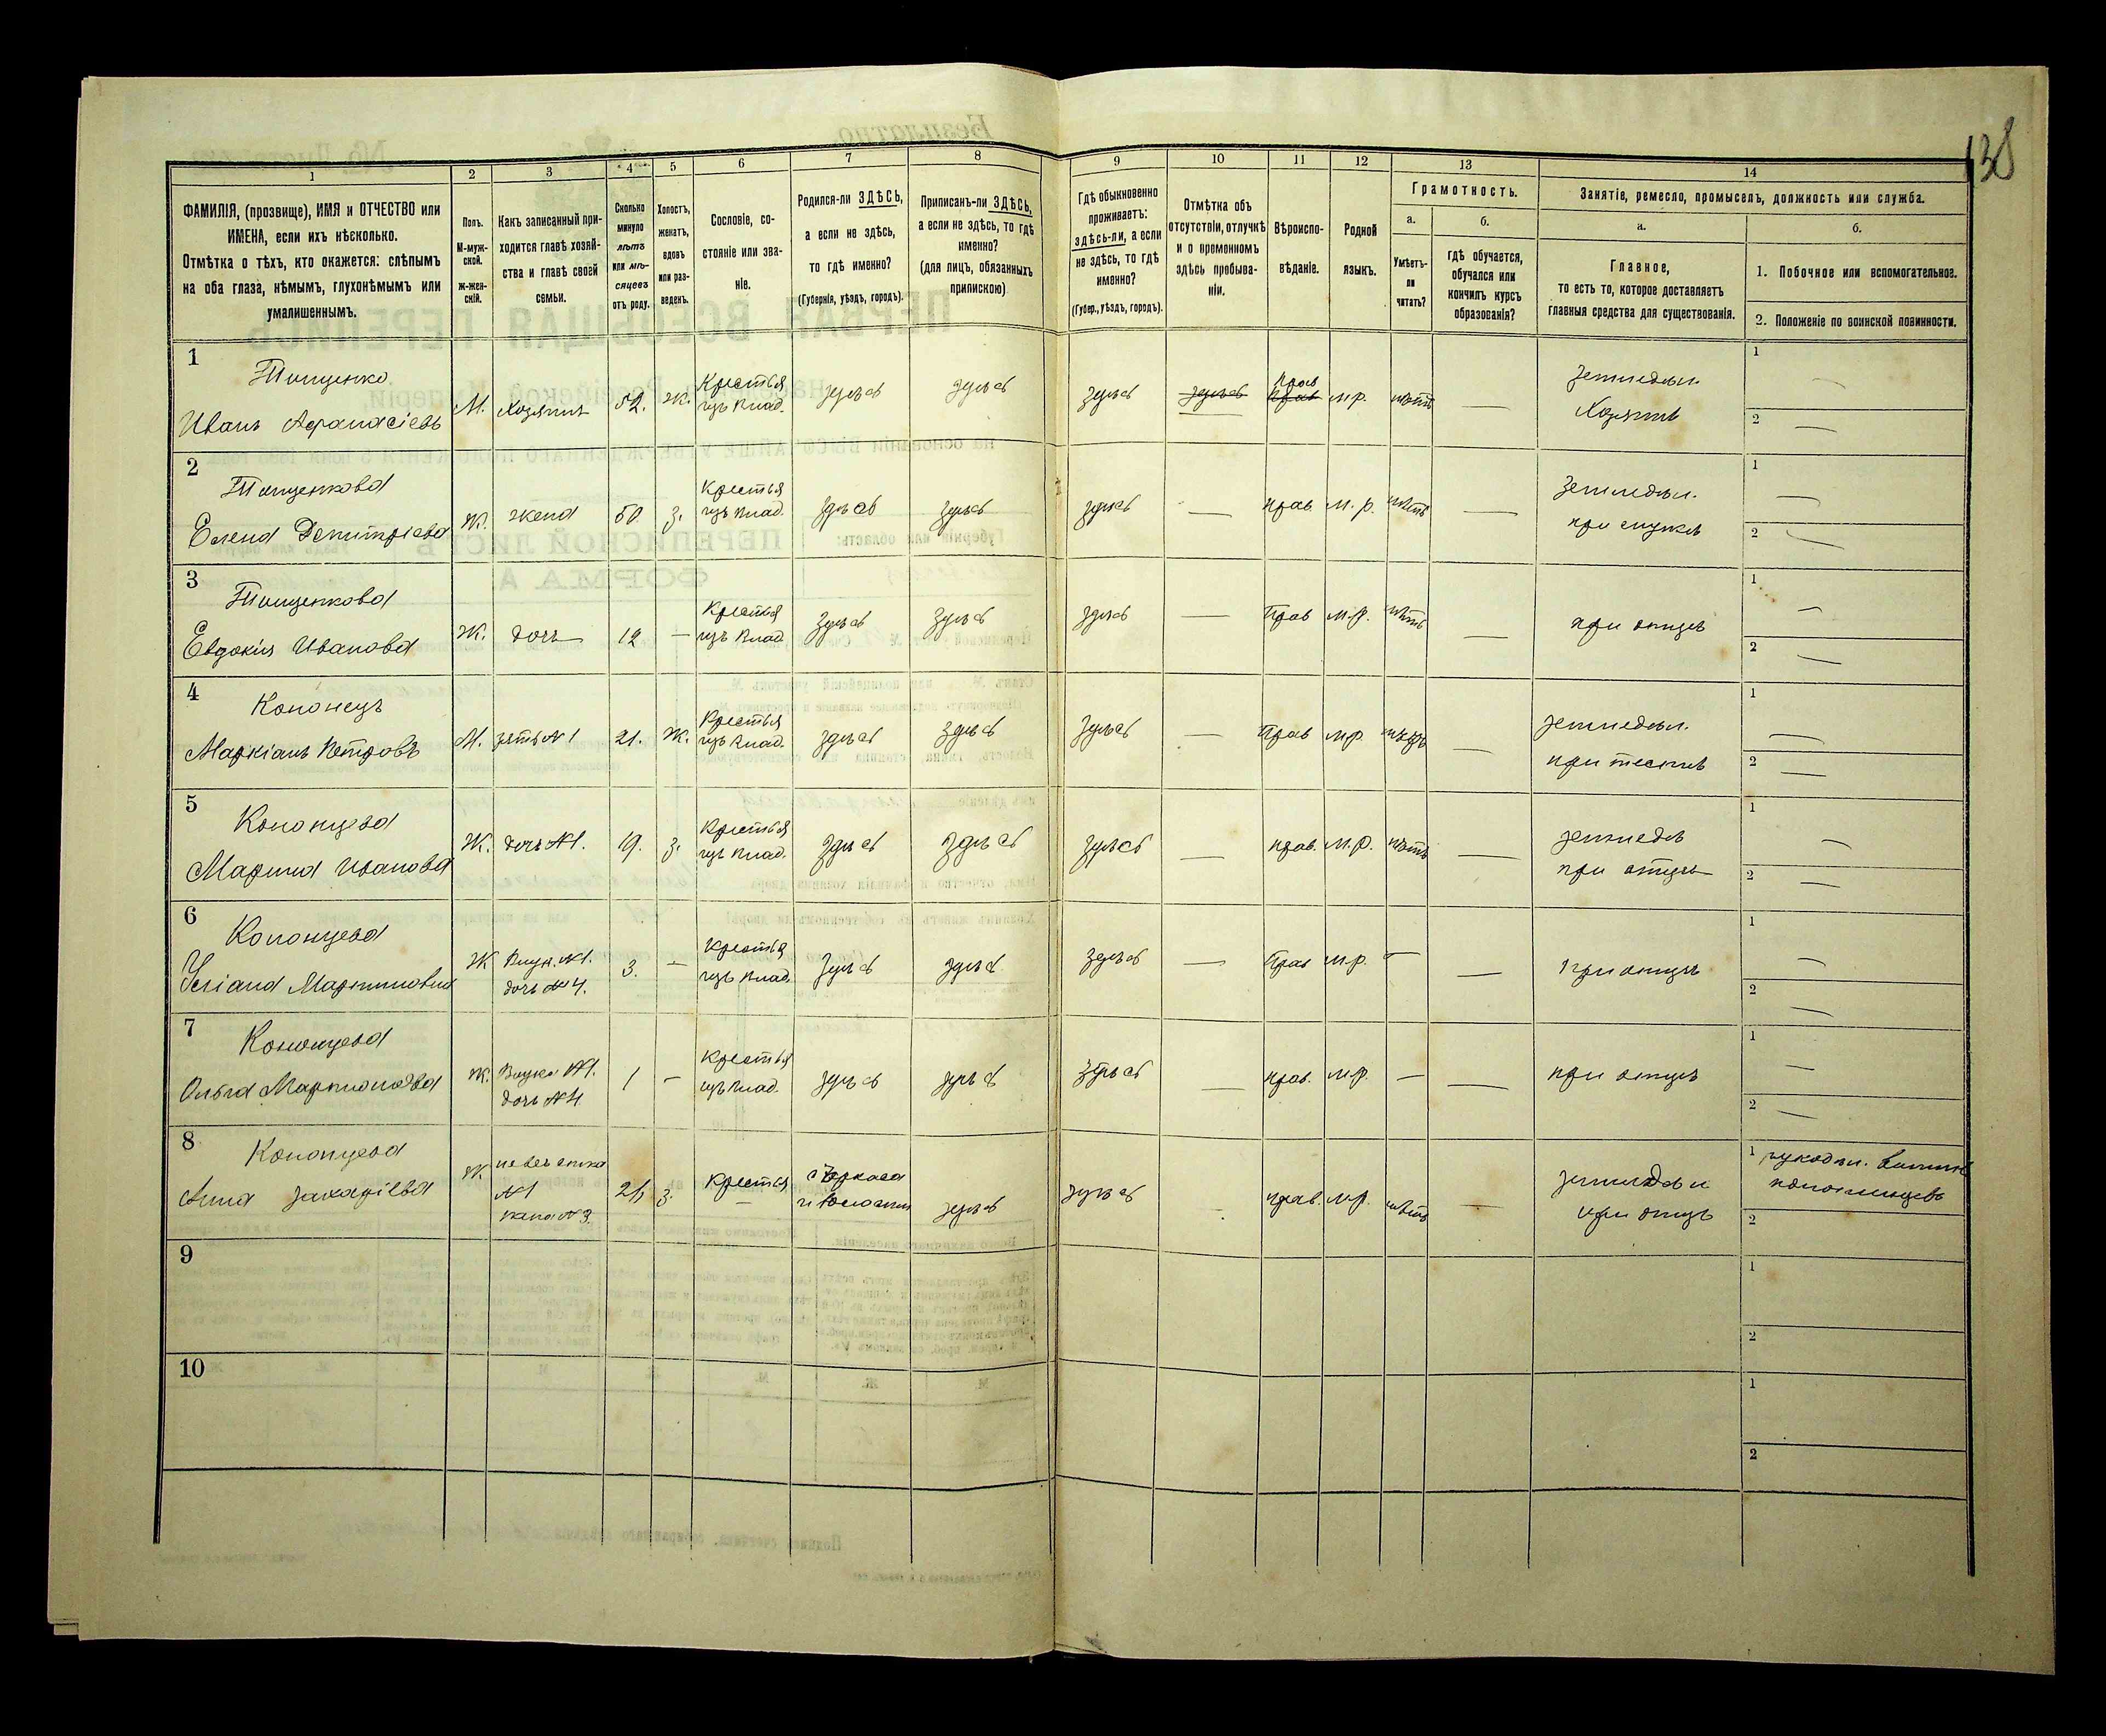 138
1
2
3
4
5
6
7
8
9
10
11
12
13
14
ФАМИЛІЯ, (прозвище), ИМЯ и ОТЧЕСТВО или
ИМЕНА, если ихъ нѣсколько.
Отмѣтка о тѣхъ, кто окажется: слѣпымъ
на оба глаза, нѣмымъ, глухонѣмымъ или
умалишеннымъ.
Полъ.
М-муж-
ской.
Ж-жен-
скій.
Какъ записанный при-
ходится главѣ хозяй-
ства и главѣ своей
семьи.
Сколько
минуло
лѣтъ
или мѣ-
сяцевъ
отъ роду.
Холостъ,
женатъ,
вдовъ
или раз-
веденъ.
Сословіе, со-
стояніе или зва-
ніе.
Родился-ли ЗДѢСЬ,
а если не здѣсь,
то гдѣ именно?
(Губернія, уѣздъ, городъ).
Приписанъ-ли ЗДѢСЬ,
а если не здѣсь, то гдѣ
именно?
(для лицъ, обязанныхъ
припискою)
Гдѣ обыкновенно
проживаетъ:
здѣсь-ли, а если
не здѣсь, то гдѣ
именно?
(Губер., уѣздъ, городъ).
Отмѣтка объ
отсутствіи, отлучкѣ
и о временномъ
здѣсь пребыва-
ніи.
Вѣроиспо-
вѣданіе.
Родной
языкъ.
Грамотность.
а.
Умѣетъ-
ли
читать?
б.
гдѣ обучается,
обучался или
кончилъ курсъ
образованія?
Занятіе, ремесло, промыселъ, должность или служба.
а.
Главное,
то есть то, которое доставляетъ
главныя средства для существованія.
б.
1. Побочное или вспомогательное.
2. Положеніе по воинской повинности.
1
Тищенко
Иванъ Афанасіевъ
М.
Хозяинъ
52.
Ж.
Крестья
изъ влад.
здѣсь
здѣсь
здѣсь
здѣсь
прав
прав
м.р.
нѣтъ
—
земледѣл.
Хозяинъ
1 —
2 —
2
Тищенкова
Елена Демитріева
Ж.
жена
50
з.
Крестья
изъ влад.
здѣсь
здѣсь
здѣсь
—
прав.
м.р.
нѣтъ
—
земледѣл.
при мужѣ
1 —
2 —
3
Тищенкова
Евдокія Иванова
Ж.
дочь
12
—
Крестья
изъ влад
здѣсь
здѣсь
здѣсь
—
прав
м.р.
нѣтъ
—
при отцѣ
1 —
2 —
4
Кононецъ
Маркіанъ Петровъ
М.
зять №1
21.
Ж.
Крестья
изъ влад.
здѣсь
здѣсь
здѣсь
—
прав
м.р.
нѣтъ
—
земледѣл.
при тестѣ
1 —
2 —
5
Кононцева
Марина Иванова
Ж.
дочь №1.
19.
з.
Крестья
изъ влад.
здѣсь
здѣсь
здѣсь
—
прав.
м.р.
нѣтъ
—
земледѣ
при отцѣ
1 —
2 —
6
Кононцева
Ж
Внук. №1.
дочь №4.
3.
—
Крестья
изъ влад.
здѣсь
здѣсь
здѣсь
—
прав
м.р.
—
—
при отцѣ
1 —
2 —
7
Кононцева
Ольга
Ж.
Внука №1.
дочь №4
1
—
Крестья
изъ влад.
здѣсь
здѣсь
здѣсь
—
прав.
м.р.
—
—
при отцѣ
1 —
2 —
8
Кононцева
Анна Захаріева
Ж.
невѣстка
№1
з.
Крестья
—
здѣсь
здѣсь
—
прав.
м.р.
нѣтъ
—
при отцѣ
1
2
9
1
2
10
1
2